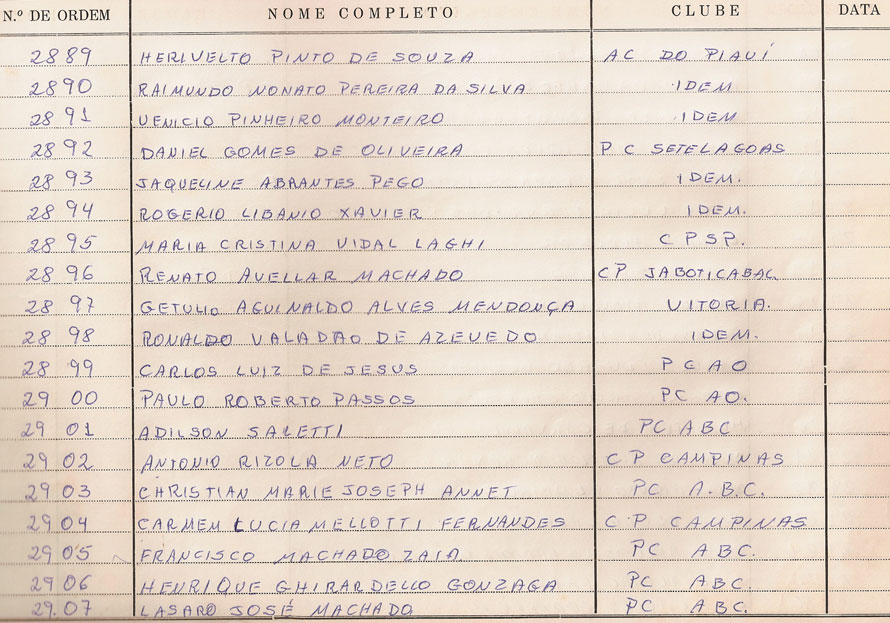 N.º DE ORDEM NOME COMPLETO CLUBE DATA
2889 HERIVELTO PINTO DE SOUZA AC DO PIAUÍ
2890 RAIMUNDO NONATO PEREIRA DA SILVA IDEM
2891 VENICIO PINHEIRO MONTEIRO IDEM
2892 DANIEL GOMES DE OLIVEIRA P C SETE LAGOAS
2893 JAQUELINE ABRANTES PEGO IDEM.
2894 ROGERIO LIBANIO XAVIER IDEM.
2895 MARIA CRISTINA VIDAL LAGHI C P S P.
2896 RENATO AVELLAR MACHADO C P JABOTICABAL
2897 GETULIO AGUINALDO ALVES MENDONÇA VITORIA.
2898 RONALDO VALADÃO DE AZEVEDO IDEM.
2899 CARLOS LUIZ DE JESUS P C A O
2900 PAULO ROBERTO PASSOS PC AO.
2901 ADILSON SALETTI PC ABC
2902 ANTONIO RIZOLA NETO C P CAMPINAS
2903 CHRISTIAN MARIE JOSEPH ANNET PC A.B.C.
2904 CARMEM LUCIA MELLOTTI FERNANDES C P CAMPINAS
2905 FRANCISCO MACHADO ZAIA PC ABC.
2906 HENRIQUE GHIRARDELLO GONZAGA PC ABC.
29.07 LASARO JOSÉ MACHADO PC ABC.